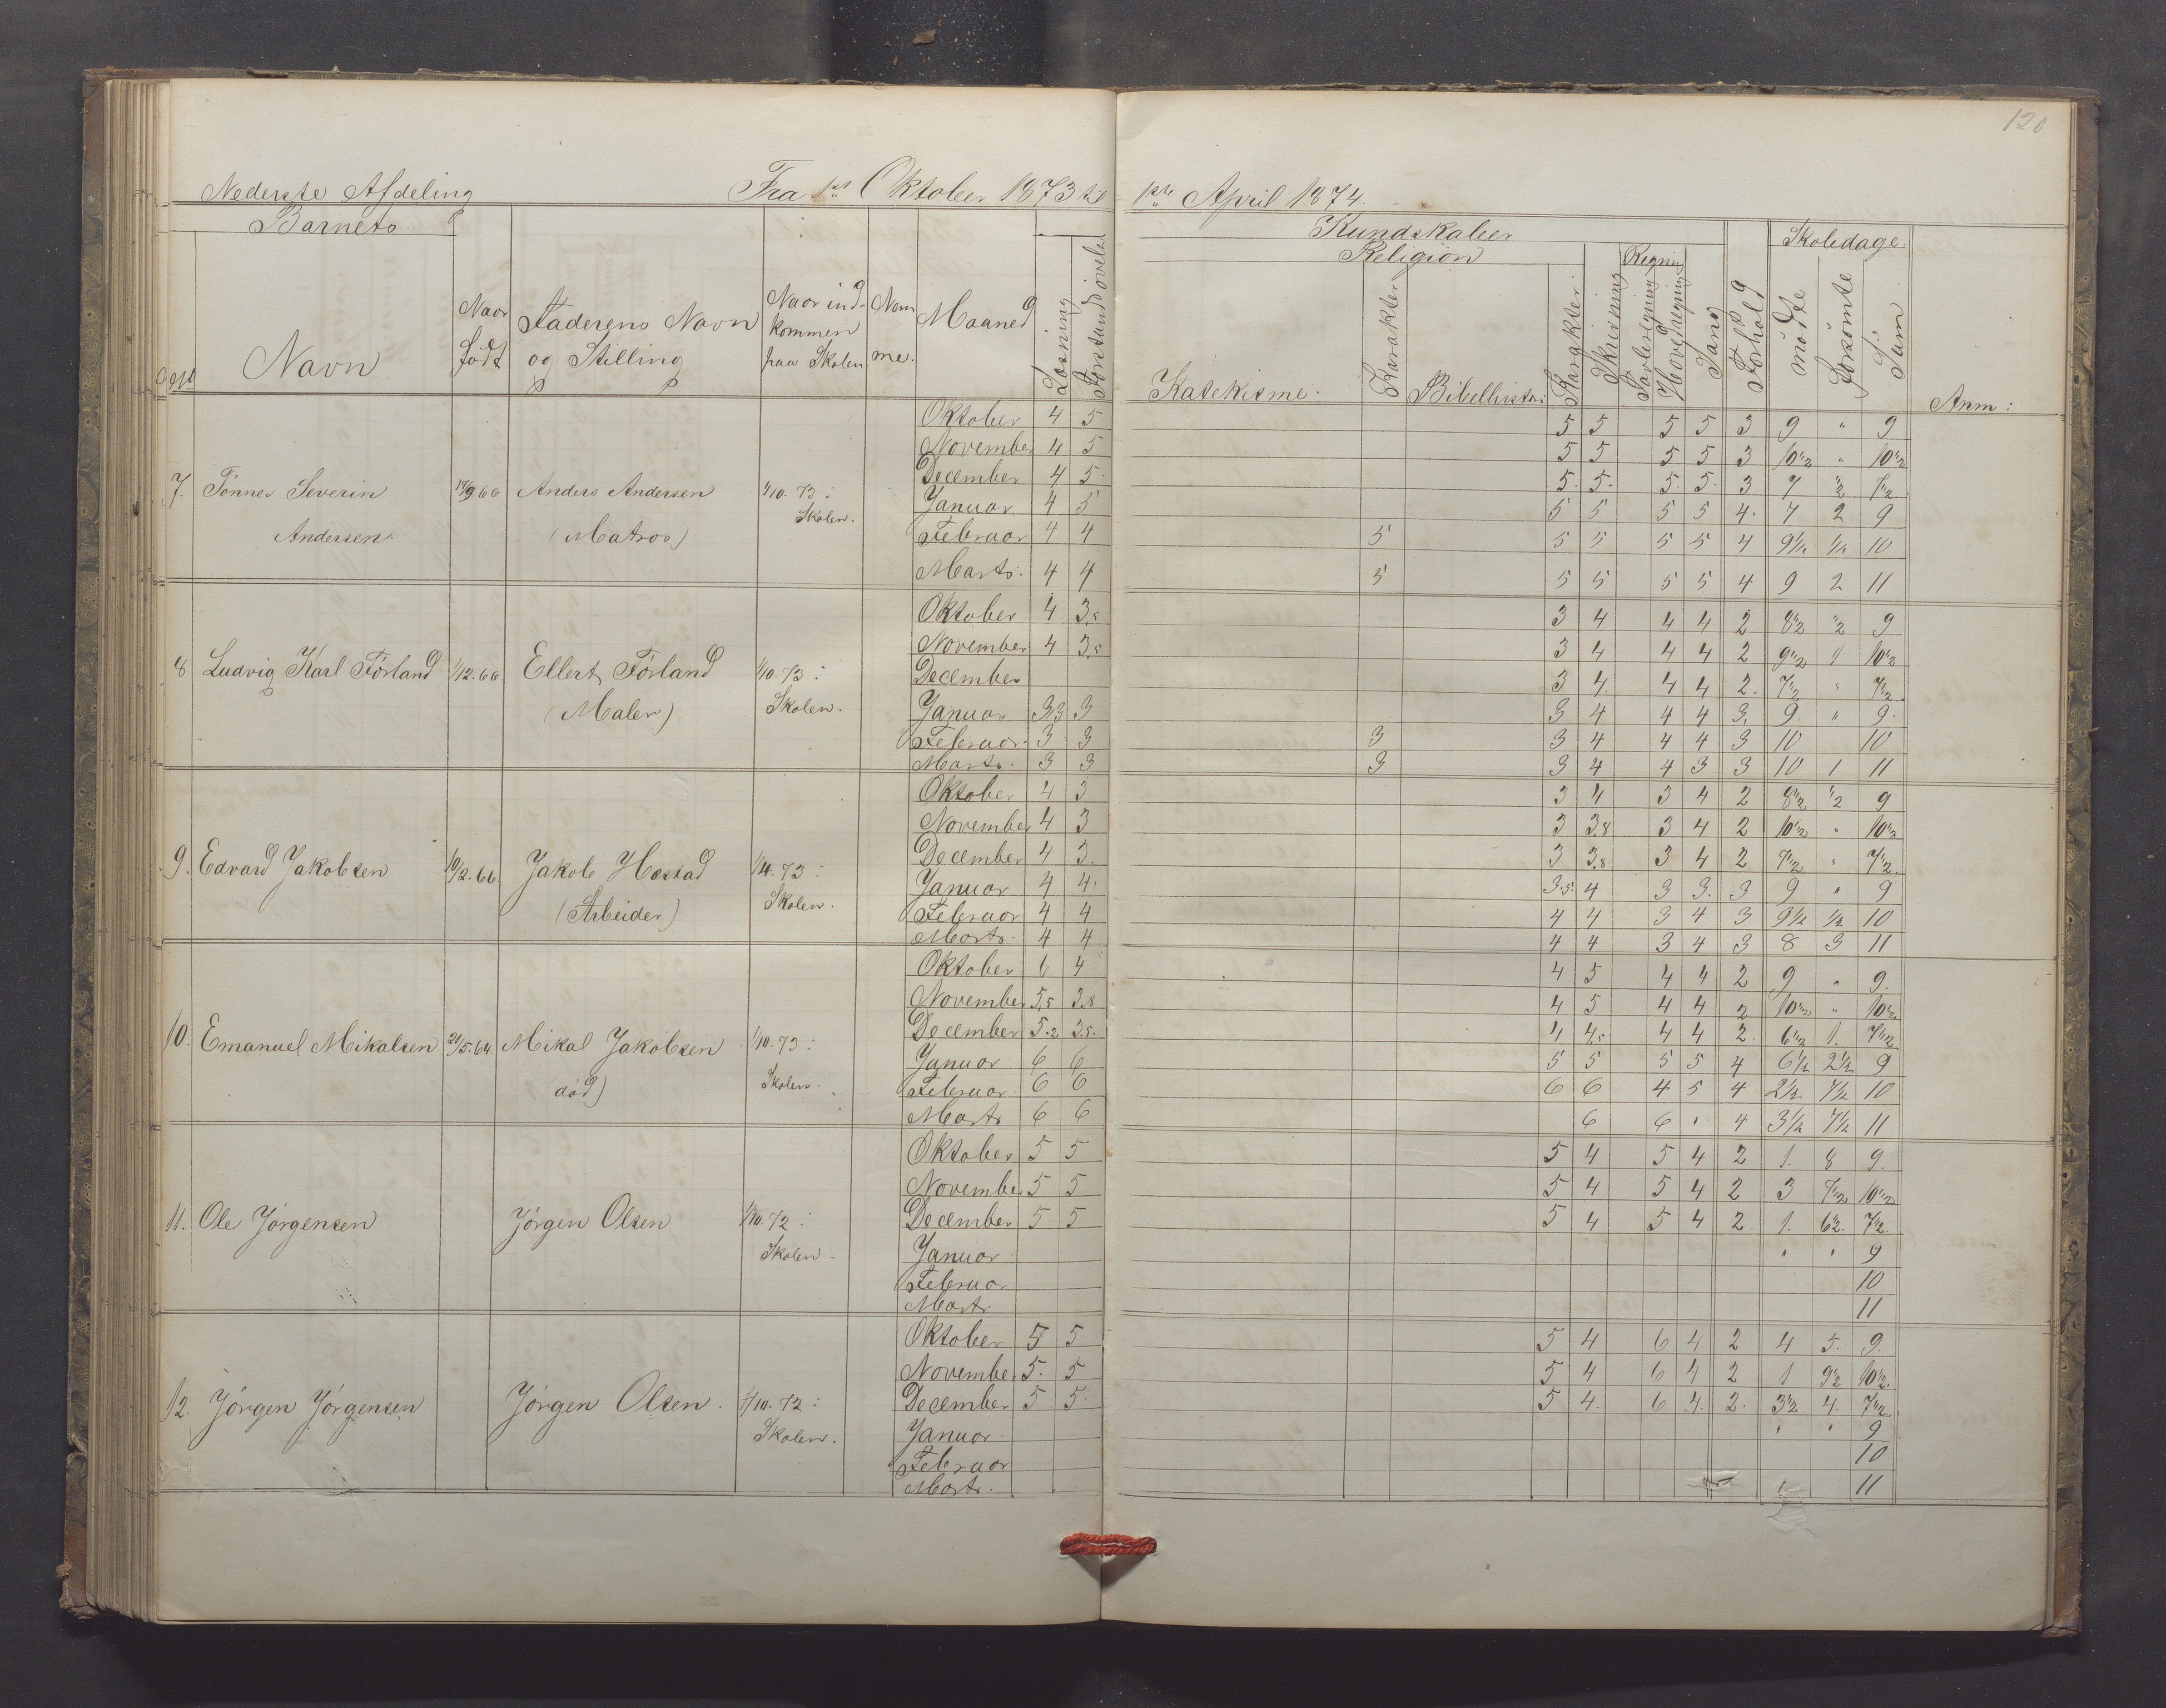 120
Nederste Afdeling Fra 1st Oktober 1873 til 1ste April 1874.
Barnets Kundskaber Skoledage
Religion Regning
Navn Naar født Faderens Navn og Stilling Naar indkommen paa Skolen Maaned Læsning Forstandsøvels Katekisme. Karakter Bibelhistor: Karakter Skrivning Tavleregning Hovedregning Sang Forhold mødte forsømte Sum Anm:
7. Tønnes Severin Andersen 66 Anders Andersen (Matros) 1/10. 73: Skolen.
Oktober 4 5 5 5 5 5 3 9 " 9
November 4 5 5 5 5 5 3 10 1/2 " 10 1/2
December 4 5 5. 5. 5. 5. 3 7 1/2 7 1/2
Januar 4 5 5 5 5 5 4. 7 2 9
Februar 4 4 5 5 5 5 5 4 9 1/2 1/2 10
Marts. 4 4 5 5 5 5 5 4 9 2 11
8 Ludvig Karl Førland 1/12. 66 Ellert Førland (Maler) 1/10. 73: Skolen.
Oktober 4 3,5 3 4 4 4 2 8 1/2 1/2 9
November 4 3,5 3 4 4 4 2 9 1/2 1 10 1/2
December 3 4. 4 4 2. 7 1/2 " 7 1/2
Januar 3,3 3 3 4 4 4 3. 9 " 9.
Februar. 3 3 3 3 4 4 4 3 10 10
Marts. 3 3 3 3 4 4 3 3 10 1 11
9. Edvard Jakobsen 10/2. 66. Jakob Hæstad (Arbeider) 73: Skolen.
Oktober 4 3 3 4 3 4 2 8 1/2 1/2 9
November 4 3 3 3.8 3 4 2 10 1/2 " 10 1/2
December 4 3. 3 3.8 3 4 2 7 1/2 " 7 1/2.
Januar 4 4. 3.5. 4 3 3. 3 9 " 9
Februar 4 4 4 4 3 4 3 9 1/2 1/2 10
Marts. 4 4 4 4 3 4 3 8 3 11
10. Emanuel Mikalsen 21/5. 64. Mikal Jakobsen død) 1/10. 73: Skolen.
Oktober 6 4 4 5 4 4 2 9 " 9.
November 5,5 3,8 4 5 4 4 2 10 1/2 " 10 1/2
December 5.2 3.5. 4 4,5 4 4 2. 6 1/2 1. 7 1/2
Januar 6 6 5 5 5 5 4 6 1/2 2 1/2 9
Februar 6 6 6 6 4 5 4 2 1/2 7 1/2 10
Marts 6 6 6 6 " 4 3 1/2 7 1/2 11
11. Ole Jørgensen Jörgen Olsen 1/10. 72: Skolen.
Oktober 5 5 5 4 5 4 2 1. 8 9.
November 5 5 5 4 5 4 2 3 7 1/2 10 1/2
December 5 5 5 4 5 4 2 1. 6 1/2. 7 1/2.
Januar " " 9
Februar 10
Marts 11
12. Jörgen Jörgensen Jörgen Olsen. 1/10. 72: Skolen.
Oktober 5 5 5 4 6 4 2 4 5. 9.
November 5. 5 5 4 6 4 2 1 9 1/2 10 1/2.
December 5 5 5 4. 6 4. 2. 3 1/2 4. 7 1/2
Januar " " 9
Februar 10
Marts. 11